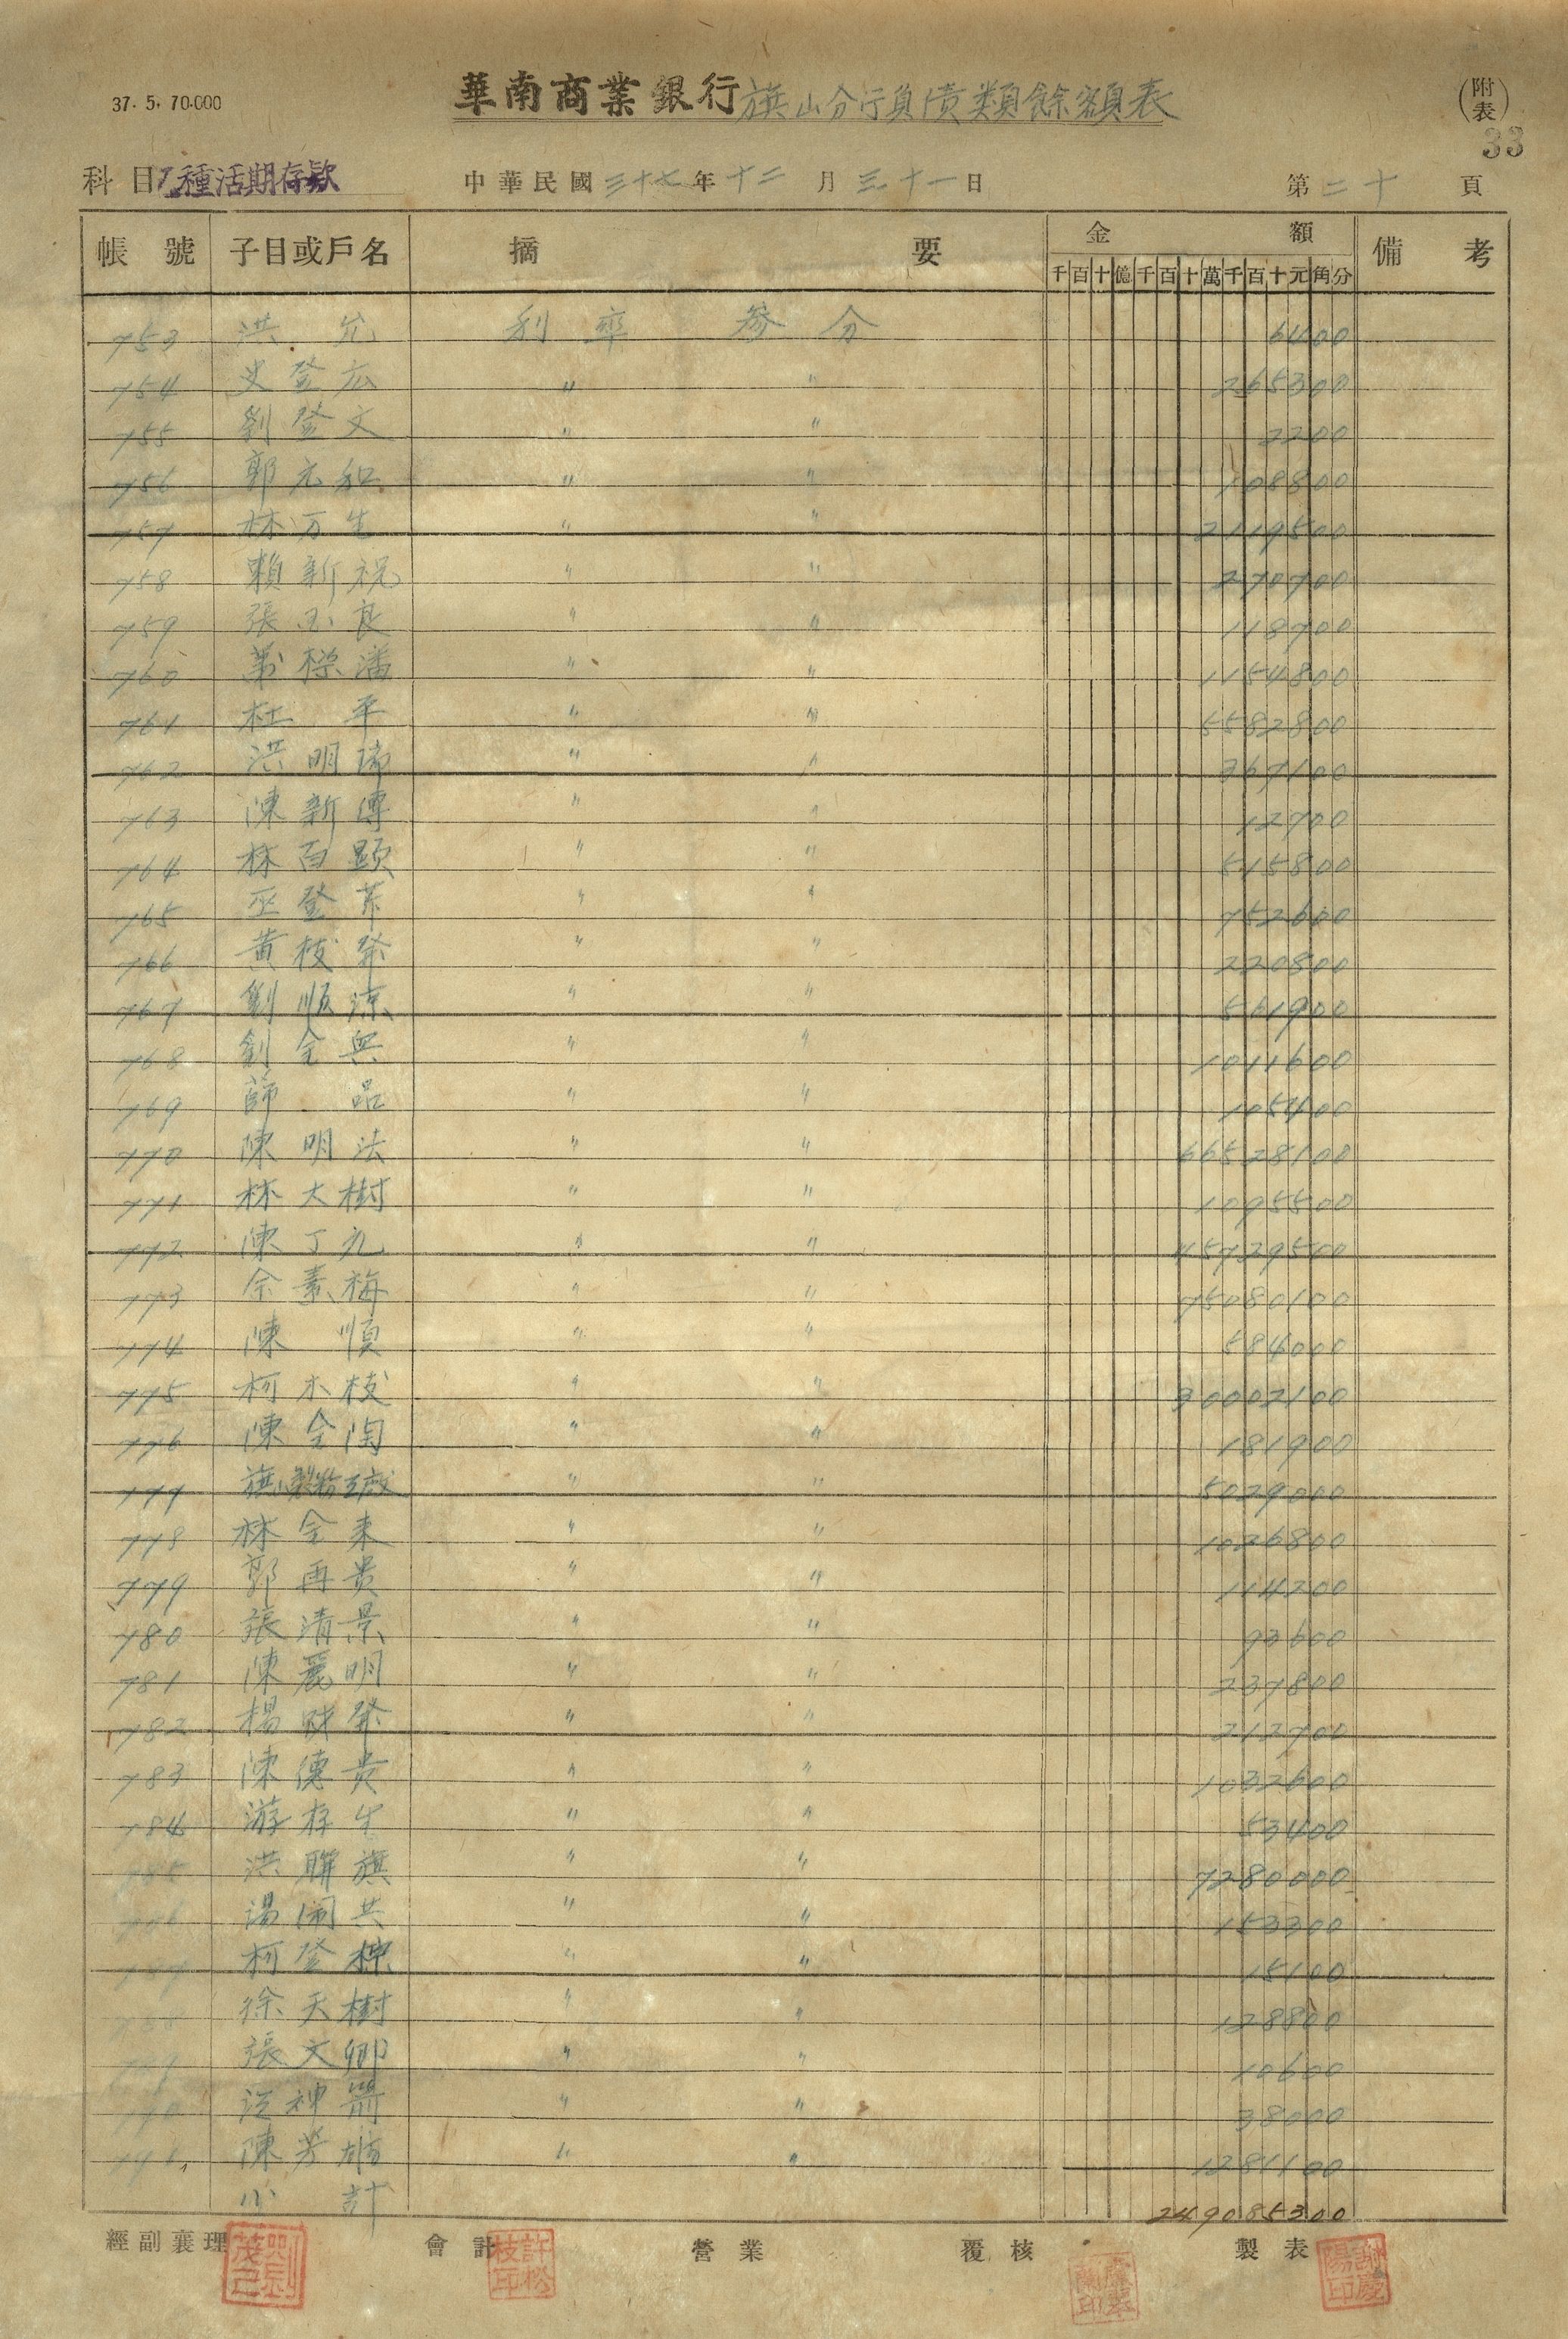 37. 5. 70.000
華南商業銀行旗山分行負債類餘額表
(附表)
33
科目 乙種活期存款 中華民國三十七年十二月三十一日 第二十頁
帳號 子目或戶名 摘要 金額 備考
千百十億千百十萬千百十元角分
753 洪允 利率 參分 61100
754 史登広 〃 〃 265300
755 劉登文 〃 〃 2200
756 郭元和 〃 〃 108800
757 林万生 〃 〃 2119500
758 賴新祝 〃 〃 270700
759 張玉良 〃 〃 118700
760 潘 〃 〃 1154800
761 杜平 〃 〃 5582800
762 洪明瑞 〃 〃 367100
763 陳新傳 〃 〃 12700
764 林百顕 〃 〃 515800
765 巫登 〃 〃 752600
766 黄枝發 〃 〃 220800
767 劉順涼 〃 〃 561900
768 劉全興 〃 〃 1011600
769 薛品 〃 〃 105400
770 陳明法 〃 〃 66528100
771 林大樹 〃 〃 1095500
772 陳丁元 〃 〃 45729500
773 余素梅 〃 〃 75080100
774 陳順 〃 〃 584000
775 柯木枝 〃 〃 30002100
776 陳全陶 〃 〃 181900
777 旗山製粉工廠 〃 〃 5029000
778 林全来 〃 〃 1026800
779 郭再貴 〃 〃 114200
780 張清景 〃 〃 93600
781 陳麗明 〃 〃 237800
782 楊財發 〃 〃 212700
783 陳德貴 〃 〃 1032600
784 游存生 〃 〃 53400
洪聯旗 〃 〃 7280000
湯闹共 〃 〃 153300
柯登 〃 〃 15100
徐天樹 〃 〃 128800
張文卿 〃 〃 10600
神 〃 〃 38000
陳芳 〃 〃 1281100
小計 249085300
經副襄理 會計 營業 覆核 製表